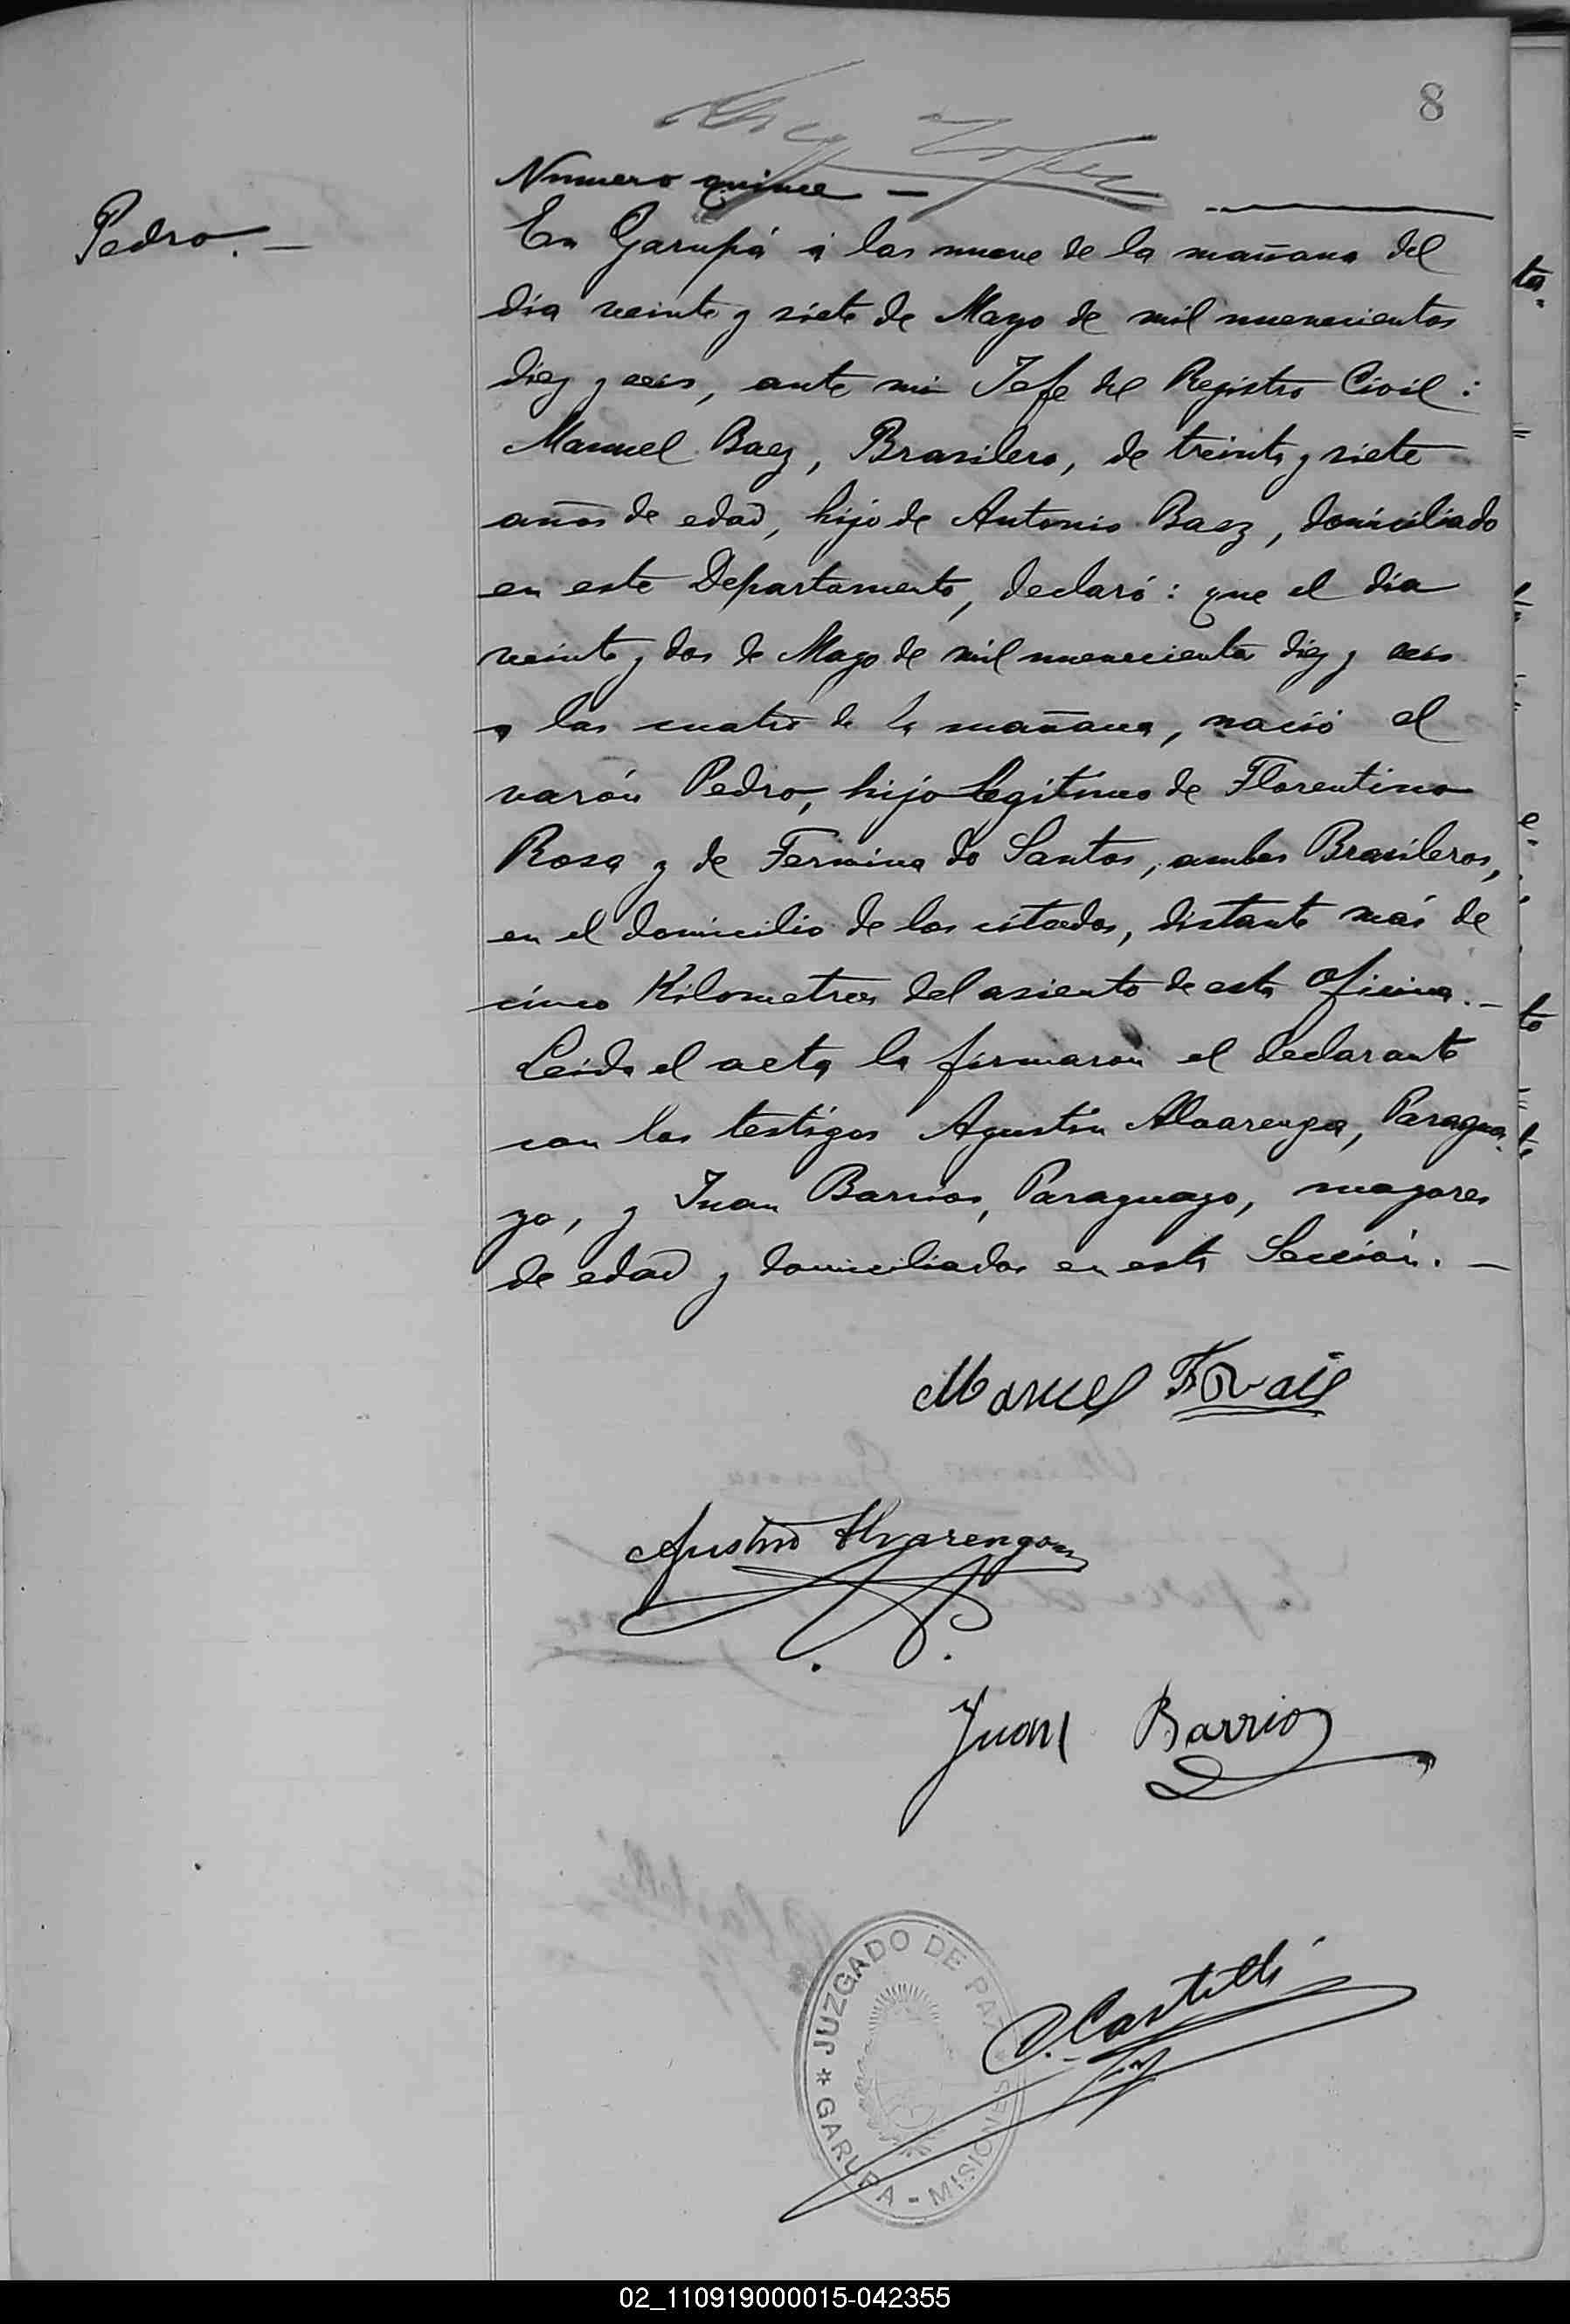 8
Numero quince —
Pedro. —
En Garupá á las nueve de la mañana del
día veinte y siete de Mayo de mil nuevecientos
diez y seis, ante mi Jefe del Registro Civil:
Manuel Baez, Brasilero, de treinta y siete
años de edad, hijo de Antonio Baez, domiciliado
en este Departamento, declaró: que el día
veinte y dos de Mayo de mil nuevecientos diez y seis
a las cuatro de la mañana, nació el
varón Pedro, hijo legitimo de Florentino
Rosa y de Fermina do Santos, ambos Brasileros,
en el domicilio de los citados, distante más de
cinco Kilometros del asiento de esta Oficina. —
Leída el acta la firmaron el declarante
con los testigos Agustín Alvarenga, Paragua-
yo, y Juan Barrios, Paraguayo, mayores
de edad y domiciliados en esta Sección. —
Manuel
Agustin Alvarenga
Juan Barrios
JUZGADO DE PAZ
* GARUPA - MISIONES
Castelli
02_110919000015-042355